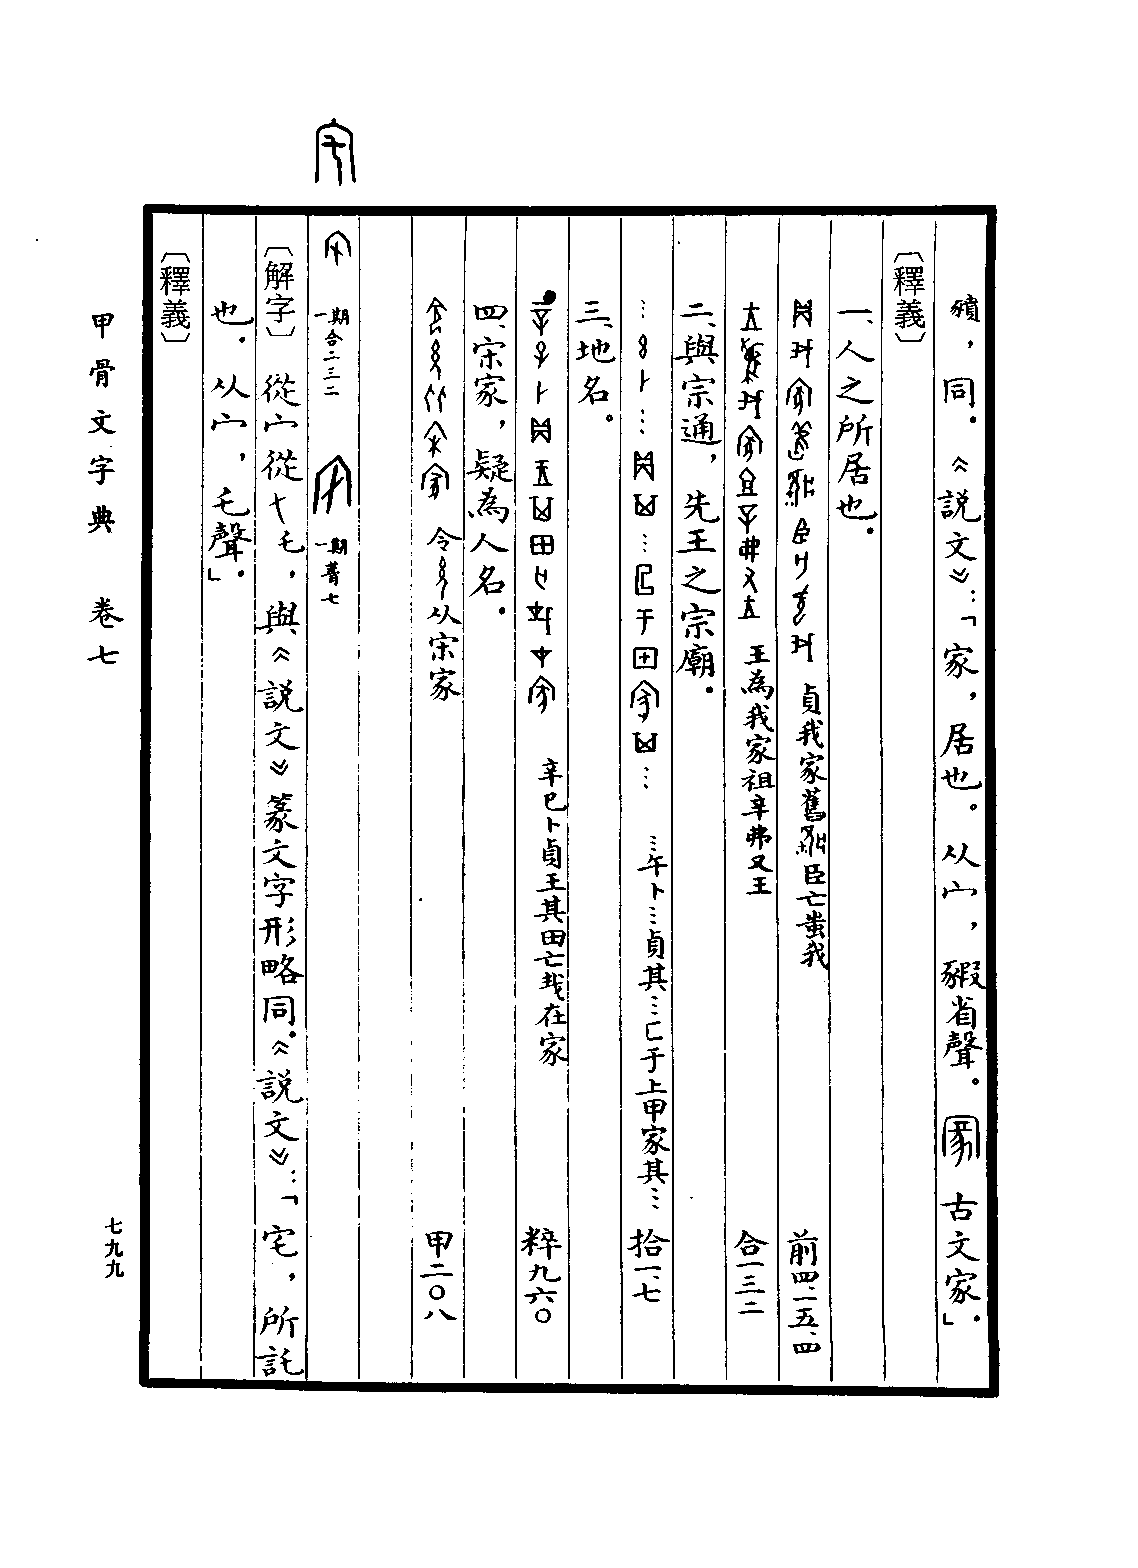 豶，同。《說文》：「家，居也。从宀，豭省聲。古文家」。
〔釋義〕
一、人之所居也。
貞我家舊臣亡蚩我 前四·一五·四
王為我家祖辛弗又王 合一三二
二、與宗通，先王之宗廟。
…午卜…貞其…匚于上甲家其… 拾一·七
三、地名。
辛巳卜貞王其田亡𢦔在家 粹九六〇
四、宋家，疑為人名。
令从宋家 甲二〇八
一期合二三二 一期菁七
〔解字〕從宀從乇，與《說文》篆文字形略同。《說文》：「宅，所託
也。从宀，乇聲」。
〔釋義〕
甲骨文字典 卷七
七九九